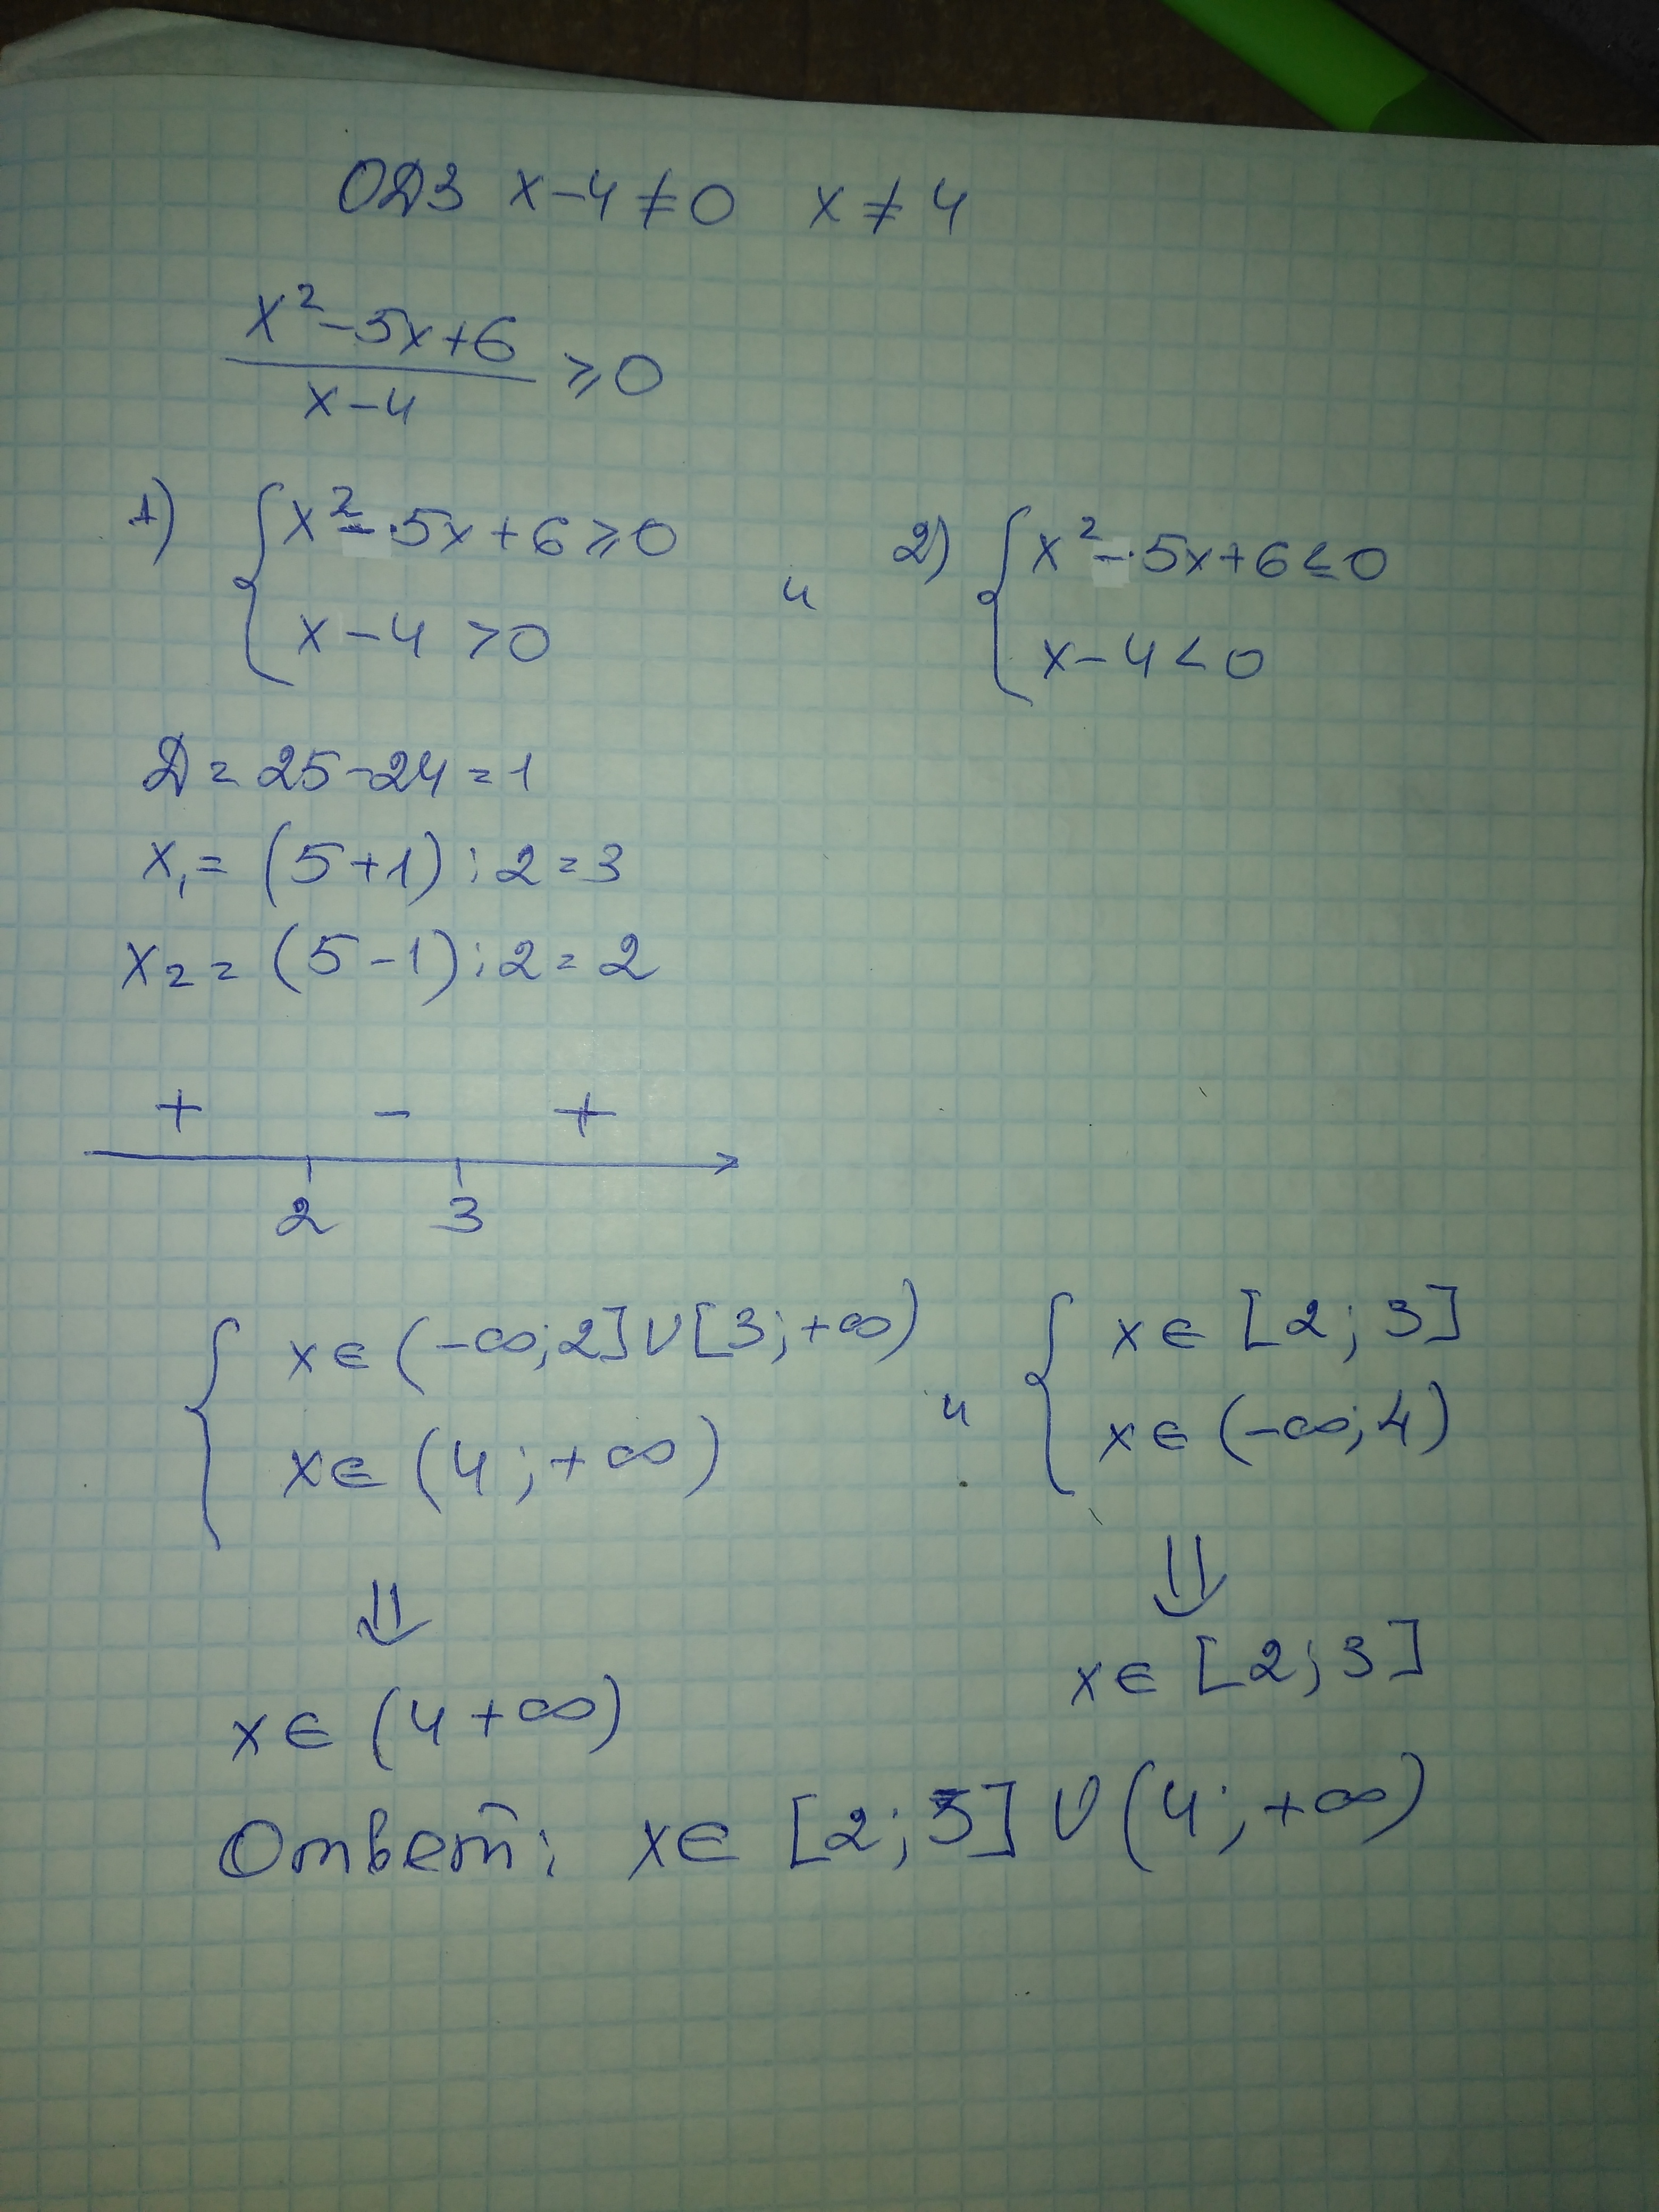 ОДЗ x-4≠0 x≠4
x²-5x+6
x-4
≥0
1) { x²-5x+6≥0
x-4>0
и
2) { x²-5x+6≤0
x-4<0
Д=25-24=1
x₁=(5+1):2=3
x₂=(5-1):2=2
+ - +
2 3
{ x∈(-∞;2]∪[3;+∞)
x∈(4;+∞)
и
{ x∈[2;3]
x∈(-∞;4)
⇓ ⇓
x∈(4+∞)
x∈[2;3]
Ответ: x∈[2;3]∪(4;+∞)